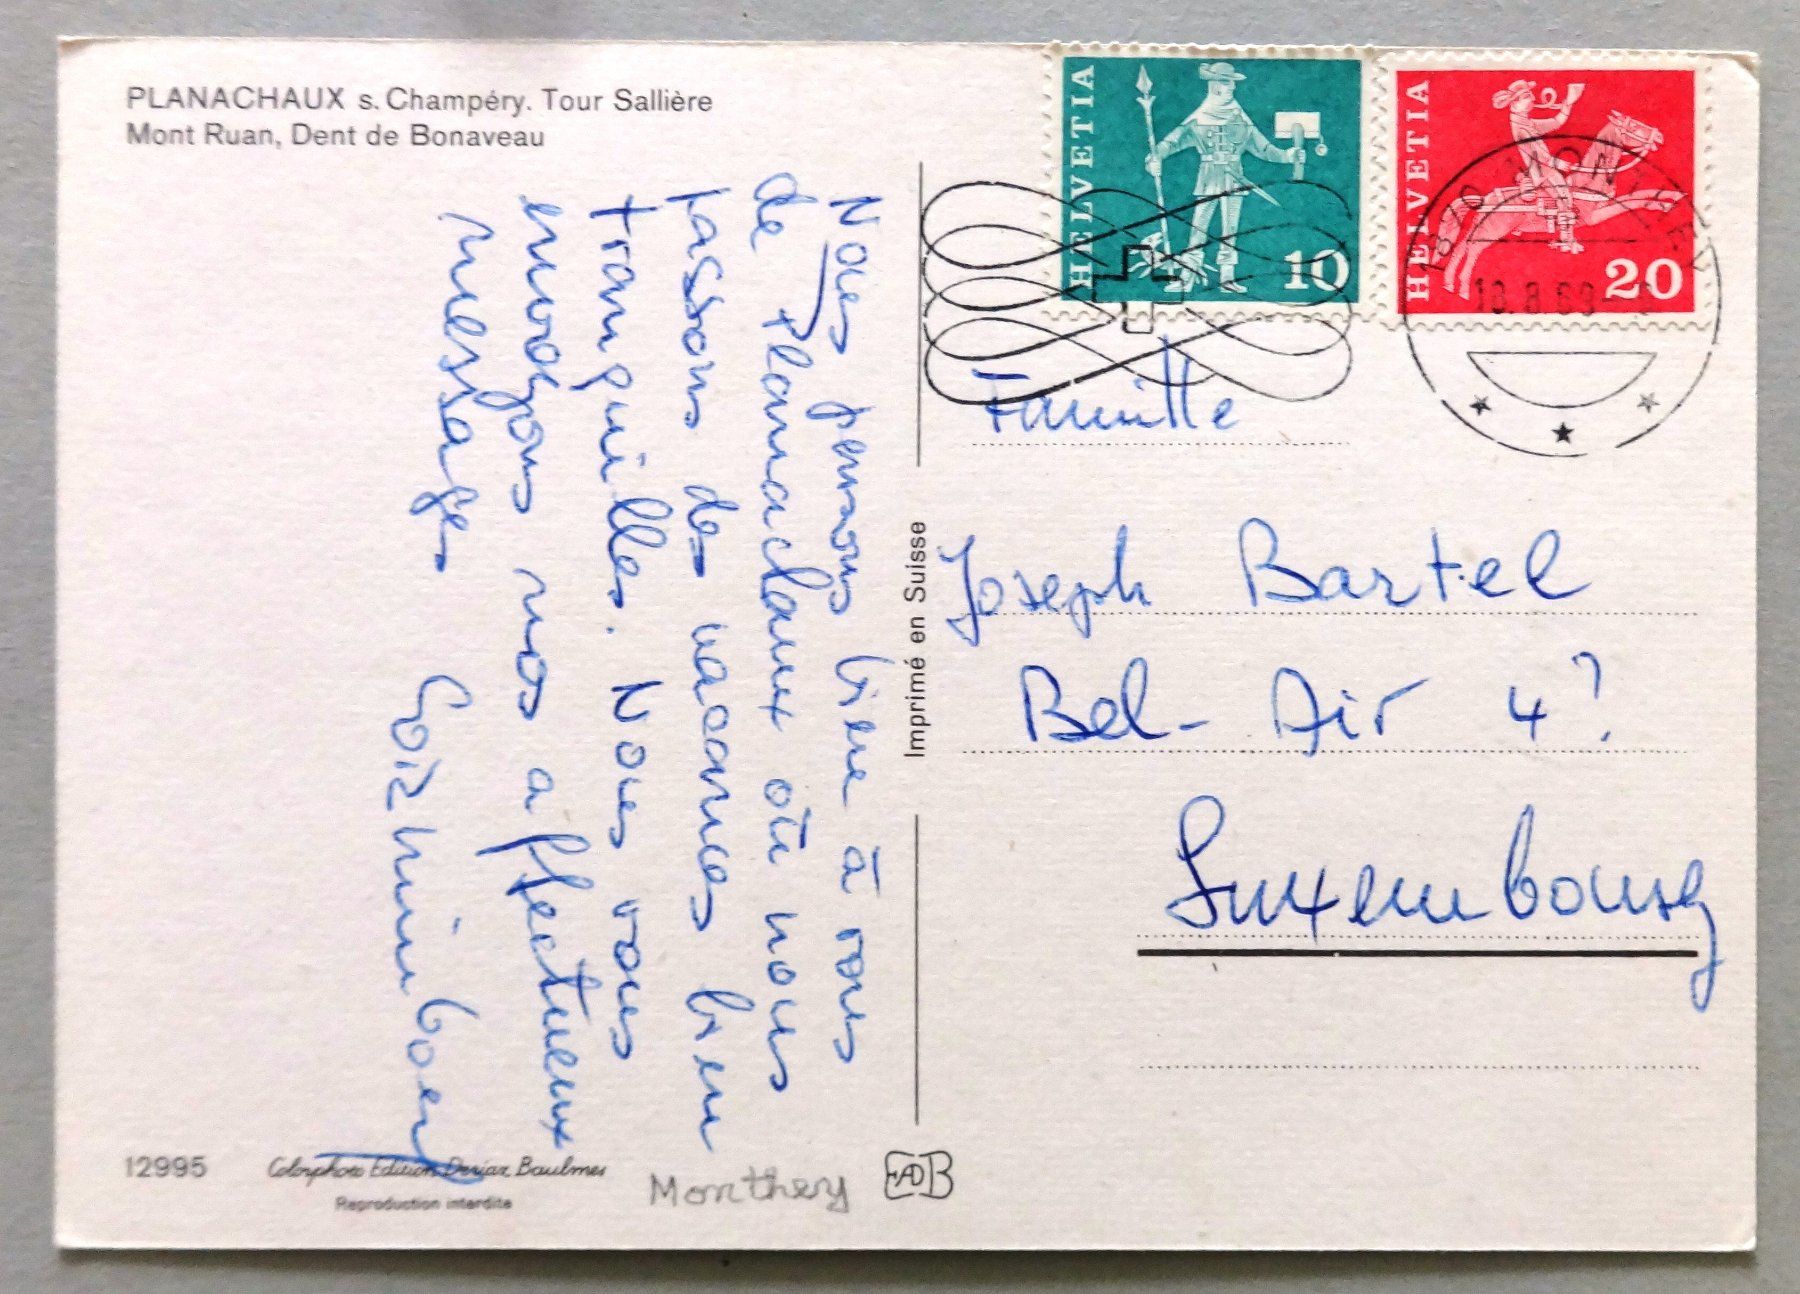 PLANACHAUX s. Champéry. Tour Sallière
Mont Ruan, Dent de Bonaveau
Nous pensons bien à vous
de Planachaux où nous
passons des vacances bien
tranquilles. Nous vous
envoyons nos affectueux
messages
HELVETIA
10
HELVETIA
20
1870 MONTHEY
Famille
Joseph Bartel
Bel-Air 4?
Luxembourg
Imprimé en Suisse
12995
Colorphoto Edition Deriaz Baulmes
Reproduction interdite
Monthey